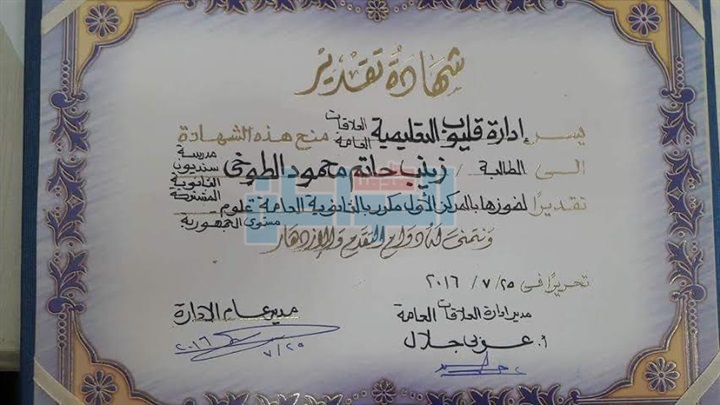 شهادة تقدير
يسر إدارة قليوب التعليمية العلاقات العامة منح هذه الشهادة
إلى الطالبة / زينب حاتم محمود الطوخى مدرسة سنديون الثانوية المشتركة
تقديرًا لفوزها بالمركز الأول مكرر بالثانوية العامة علوم مستوى الجمهورية
ونتمنى لها دوام التقدم والإزدهار
تحريرًا فى ٢٥ / ٧ / ٢٠١٦
مدير إدارة العلاقات العامة
أ. عزبى جلال
مدير عام الإدارة
٢٠١٦/٧/٢٥